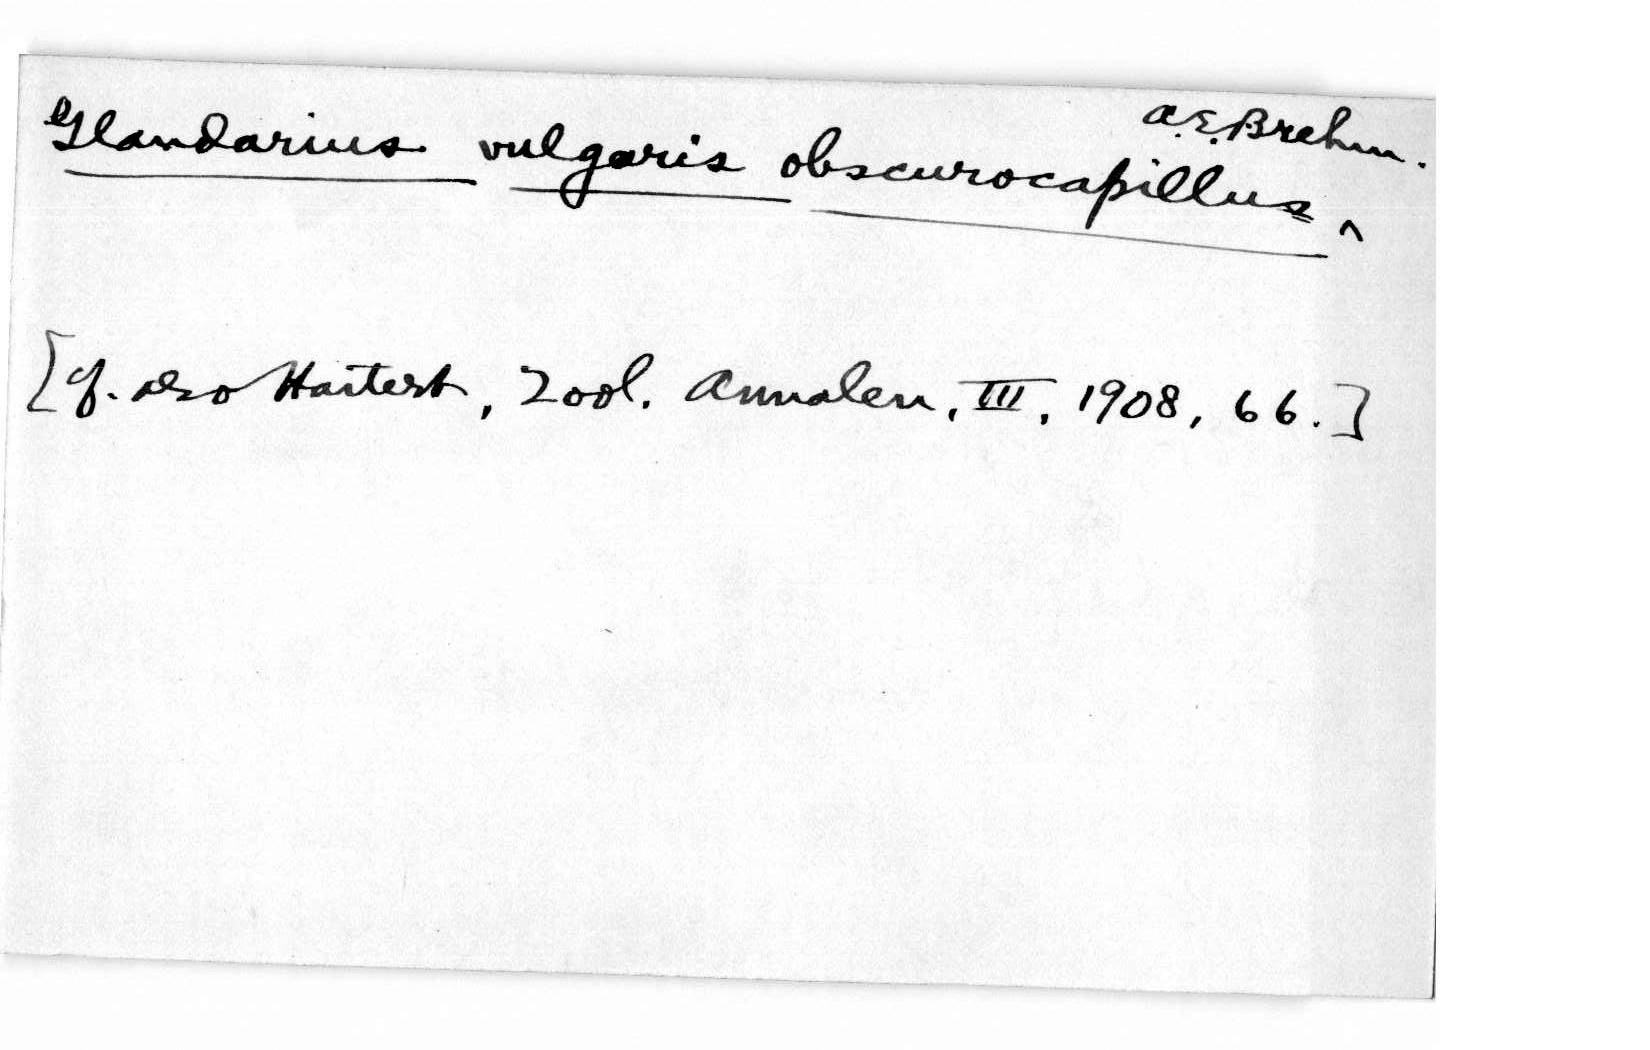 Glandarius vulgaris obscurocapillus ^ A.E. Brehm.
[cf. also Hartert, Zool. Annalen, III, 1908, 66.]